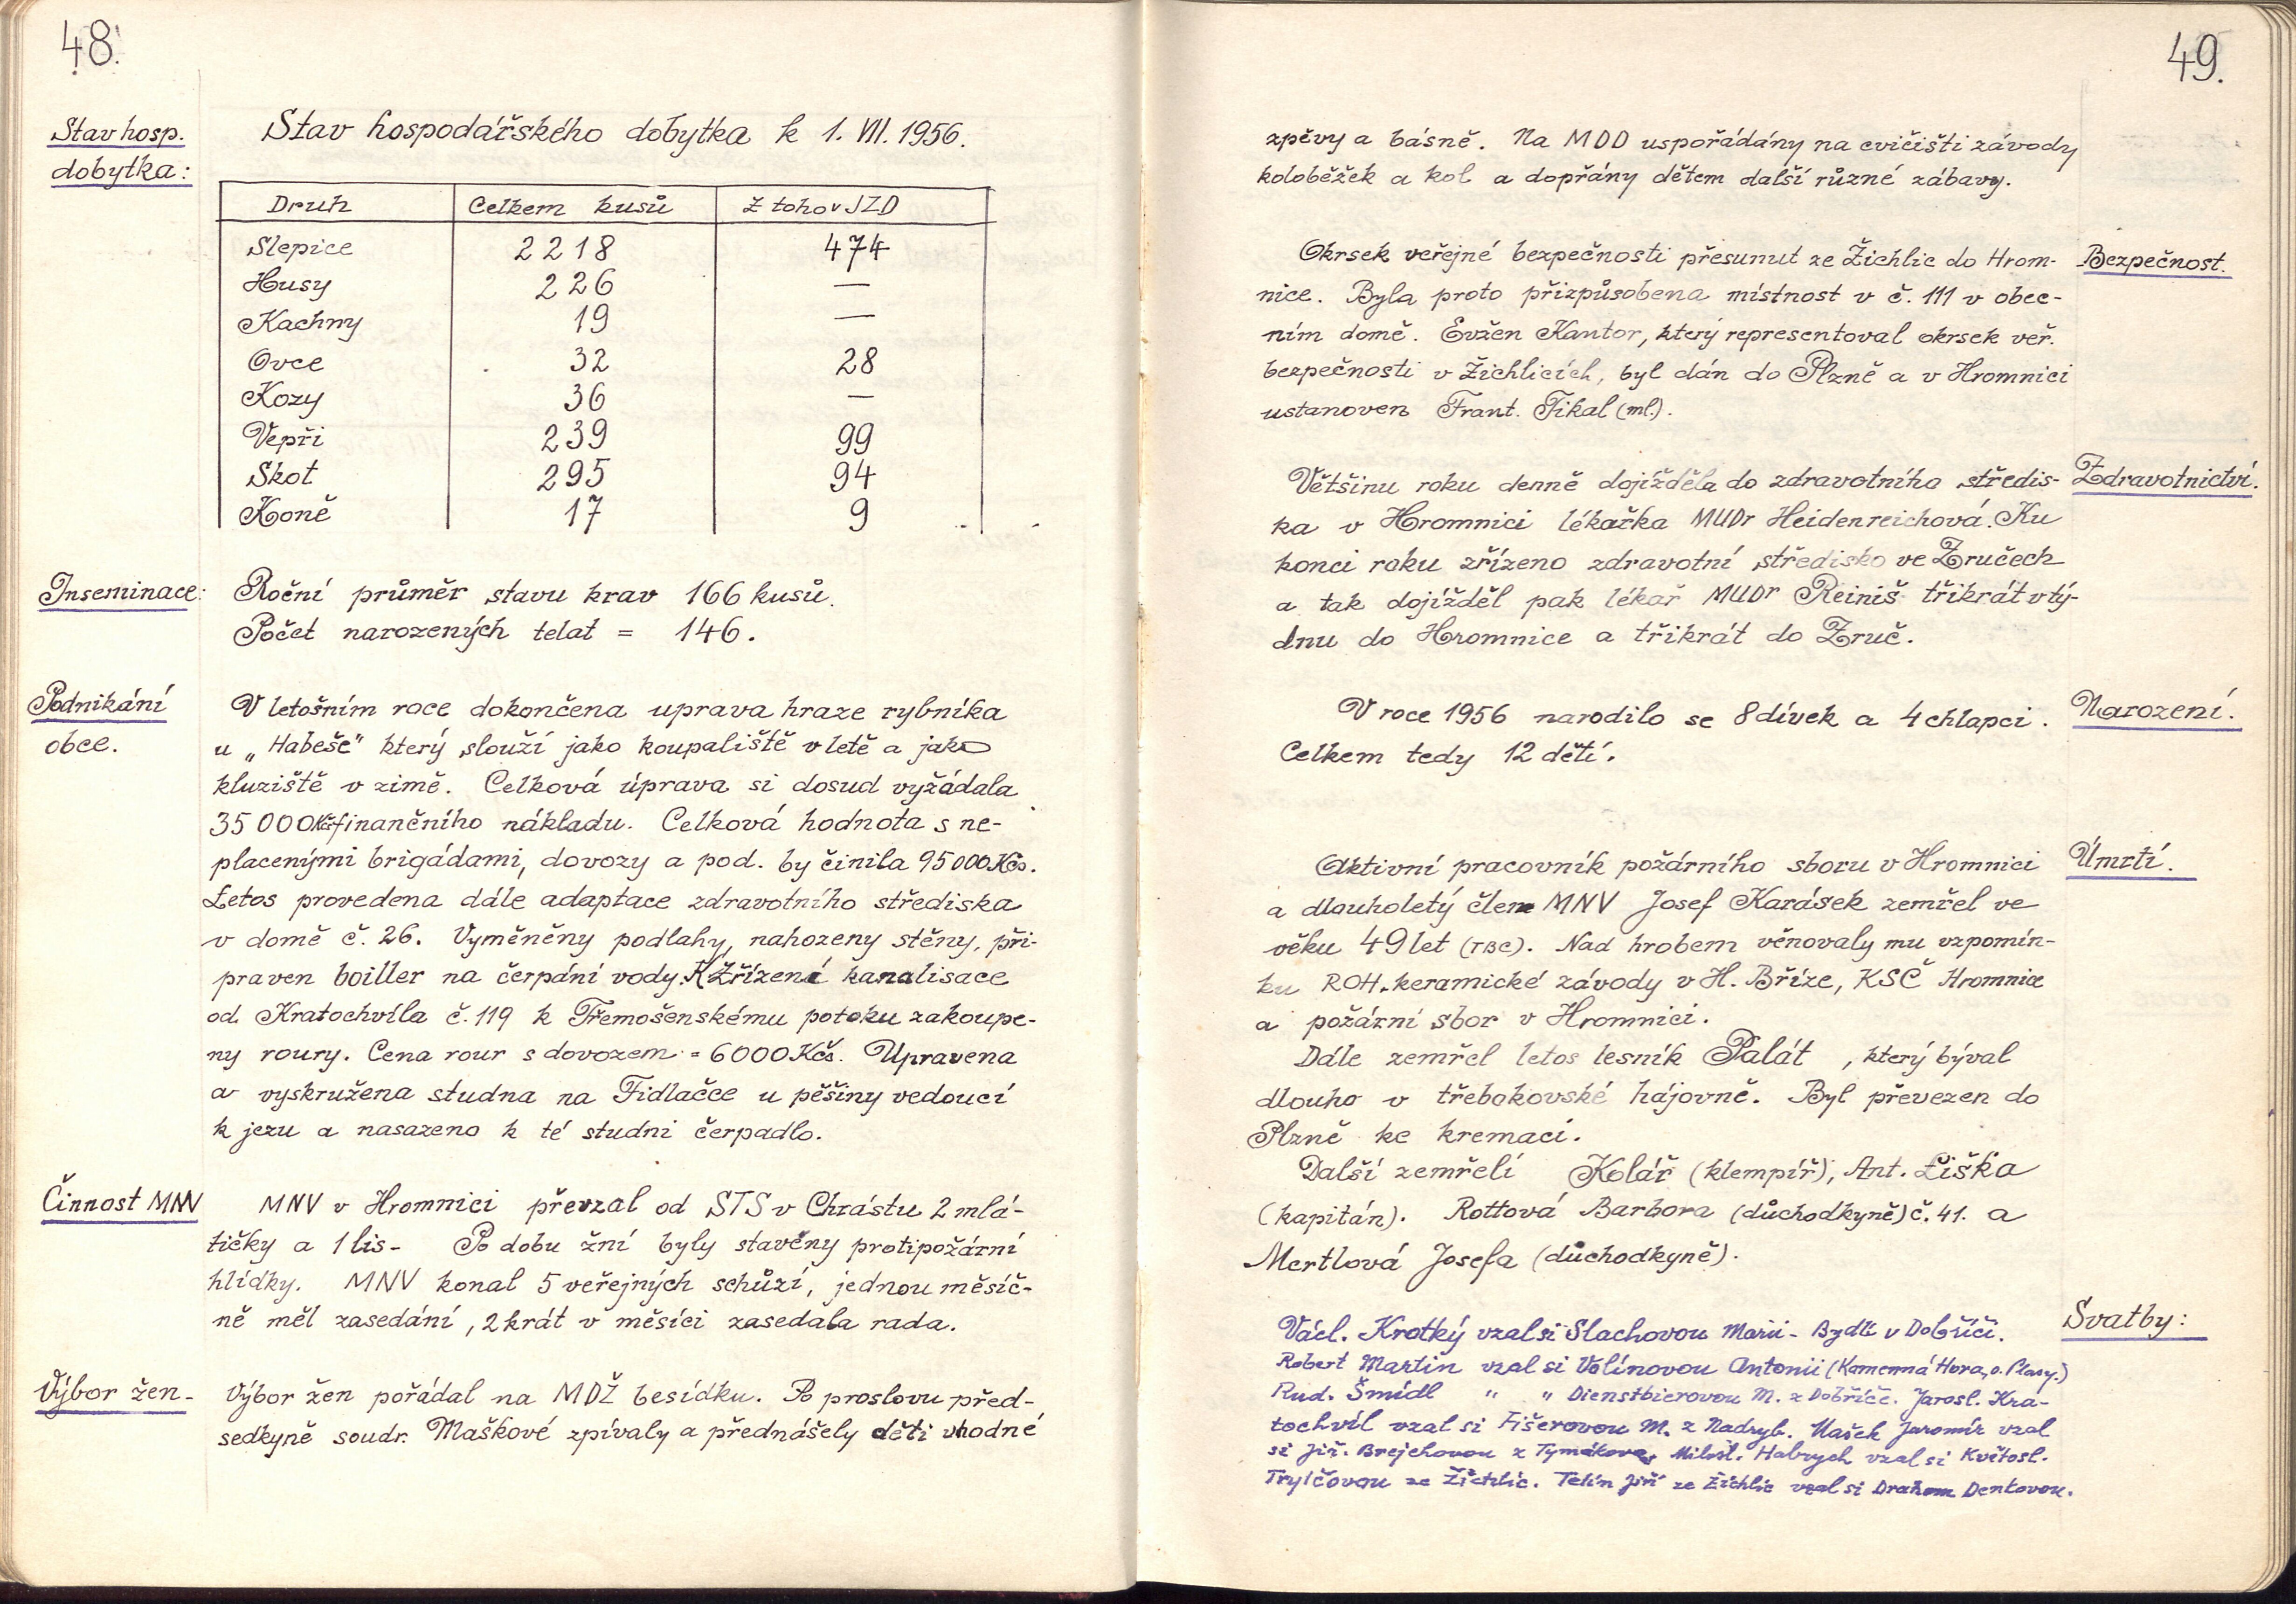 48.
Stav hosp.
dobytka:
Stav hospodářského dobytka k 1. VII. 1956.
Druh Celkem kusů Z toho v JZD
Slepice 2218 474
Husy 226 —
Kachny 19 —
Ovce 32 28
Kozy 36 —
Vepři 239 99
Skot 295 94
Koně 17 9
Inseminace:
Roční průměr stavu krav 166 kusů.
Počet narozených telat = 146.
Podnikání
obce.
V letošním roce dokončena uprava hraze rybníka
u „Habeše" který slouží jako koupaliště v letě a jako
kluziště v zimě. Celková úprava si dosud vyžádala
35000Kčs finančního nákladu. Celková hodnota s ne-
placenými brigádami, dovozy a pod. by činila 95000Kčs.
Letos provedena dále adaptace zdravotního střediska
v domě č. 26. Vyměněny podlahy, nahozeny stěny, při-
praven boiller na čerpání vody. K zřízení kanalisace
od Kratochvíla č. 119 k Třemošenskému potoku zakoupe-
ny roury. Cena rour s dovozem = 6000 Kčs. Upravena
a vyskružena studna na Fidlačce u pěšiny vedoucí
k jezu a nasazeno k té studni čerpadlo.
Činnost MNV
MNV v Hromnici převzal od STS v Chrástu 2 mlá-
tičky a 1 lis- Po dobu žní byly stavěny protipožární
hlídky. MNV konal 5 veřejných schůzí, jednou měsíč-
ně měl zasedání, 2 krát v měsíci zasedala rada.
Výbor žen-
Výbor žen pořádal na MDŽ besídku. Po proslovu před-
sedkyně soudr. Maškové zpívaly a přednášely děti vhodné
49.
zpěvy a básně. Na MDD uspořádány na cvičišti závody
koloběžek a kol a dopřány dětem další různé zábavy.
Bezpečnost.
Okrsek veřejné bezpečnosti přesunut ze Žichlic do Hrom-
nice. Byla proto přizpůsobena místnost v č. 111 v obec-
ním domě. Evžen Kantor, který representoval okrsek veř.
bezpečnosti v Žichlicích, byl dán do Plzně a v Hromnici
ustanoven Frant. Fikal (ml.).
Zdravotnictví.
Většinu roku denně dojížděla do zdravotního středis-
ka v Hromnici lékařka MUDr Heidenreichová. Ku
konci roku zřízeno zdravotní středisko ve Zručech
a tak dojížděl pak lékař MUDr Reiniš třikrát v tý-
dnu do Hromnice a třikrát do Zruč.
Narození.
V roce 1956 narodilo se 8 dívek a 4 chlapci.
Celkem tedy 12 dětí.
Úmrtí.
Aktivní pracovník požárního sboru v Hromnici
a dlouholetý člen MNV Josef Karásek zemřel ve
věku 49 let (TBC). Nad hrobem věnovaly mu vzpomín-
ku ROH. keramické závody v H. Bříze, KSČ Hromnice
a požární sbor v Hromnici.
Dále zemřel letos lesník Palát , který býval
dlouho v třebokovské hájovně. Byl převezen do
Plzně ke kremaci.
Další zemřelí Kolář (klempíř), Ant. Liška
(kapitán). Rottová Barbora (důchodkyně) č. 41. a
Mertlová Josefa (důchodkyně).
Svatby:
Václ. Krotký vzal si Slachovou Marii - Bydlí v Dobříči.
Robert Martin vzal si Volínovou Antonii (Kamenná Hora, o. Plasy.)
Rud. Šmídl " " Dienstbierovou M. z Dobříče. Jarosl. Kra-
tochvíl vzal si Fišerovou M. z Nadryb. Hašek Jaromír vzal
si Jiř. Brejchovou z Tymákova. Milosl. Habrych vzal si Květosl.
Trylčovou ze Žichlic. Telín Jiří ze Žichlic vzal si Dentovou.